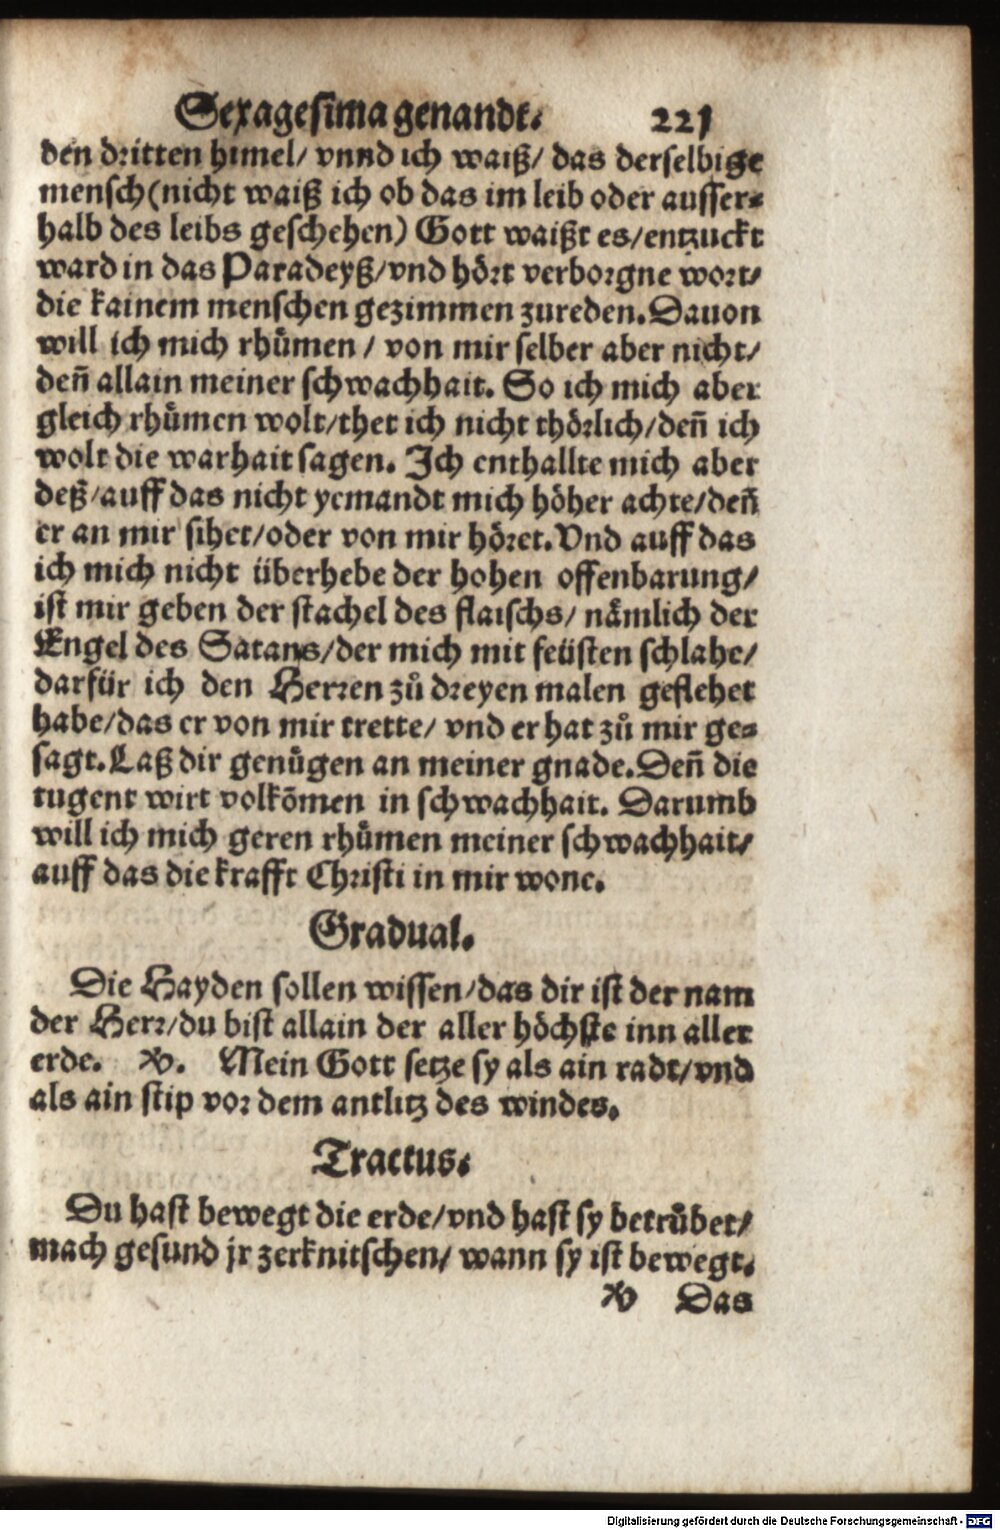 Sexagesima genandt. 221
den dritten himel/ vnnd ich waiß/ das derselbige
mensch (nicht waiß ich ob das im leib oder ausser-
halb des leibs geschehen) Gott waißt es/ entzuckt
ward in das Paradeyß/ vnd hört verborgne wort/
die kainem menschen gezimmen zureden. Dauon
will ich mich rhůmen / von mir selber aber nicht/
deñ allain meiner schwachhait. So ich mich aber
gleich rhůmen wolt/ thet ich nicht thörlich/ deñ ich
wolt die warhait sagen. Ich enthallte mich aber
deß/ auff das nicht yemandt mich höher achte/ deñ
er an mir sihet/ oder von mir höret. Vnd auff das
ich mich nicht überhebe der hohen offenbarung/
ist mir geben der stachel des flaischs/ nämlich der
Engel des Satans/ der mich mit feüsten schlahe/
darfür ich den Herren zů dreyen malen geflehet
habe/ das er von mir trette/ vnd er hat zů mir ge-
sagt. Laß dir genůgen an meiner gnade. Deñ die
tugent wirt volkõmen in schwachhait. Darumb
will ich mich geren rhůmen meiner schwachhait/
auff das die krafft Christi in mir wone.
Gradual.
Die Hayden sollen wissen/ das dir ist der nam
der Herr/ du bist allain der aller höchste inn aller
erde. ℣. Mein Gott setze sy als ain radt/ vnd
als ain stip vor dem antlitz des windes.
Tractus.
Du hast bewegt die erde/ vnd hast sy betrůbet/
mach gesund jr zerknitschen/ wann sy ist bewegt.
℣ Das
Digitalisierung gefördert durch die Deutsche Forschungsgemeinschaft - DFG